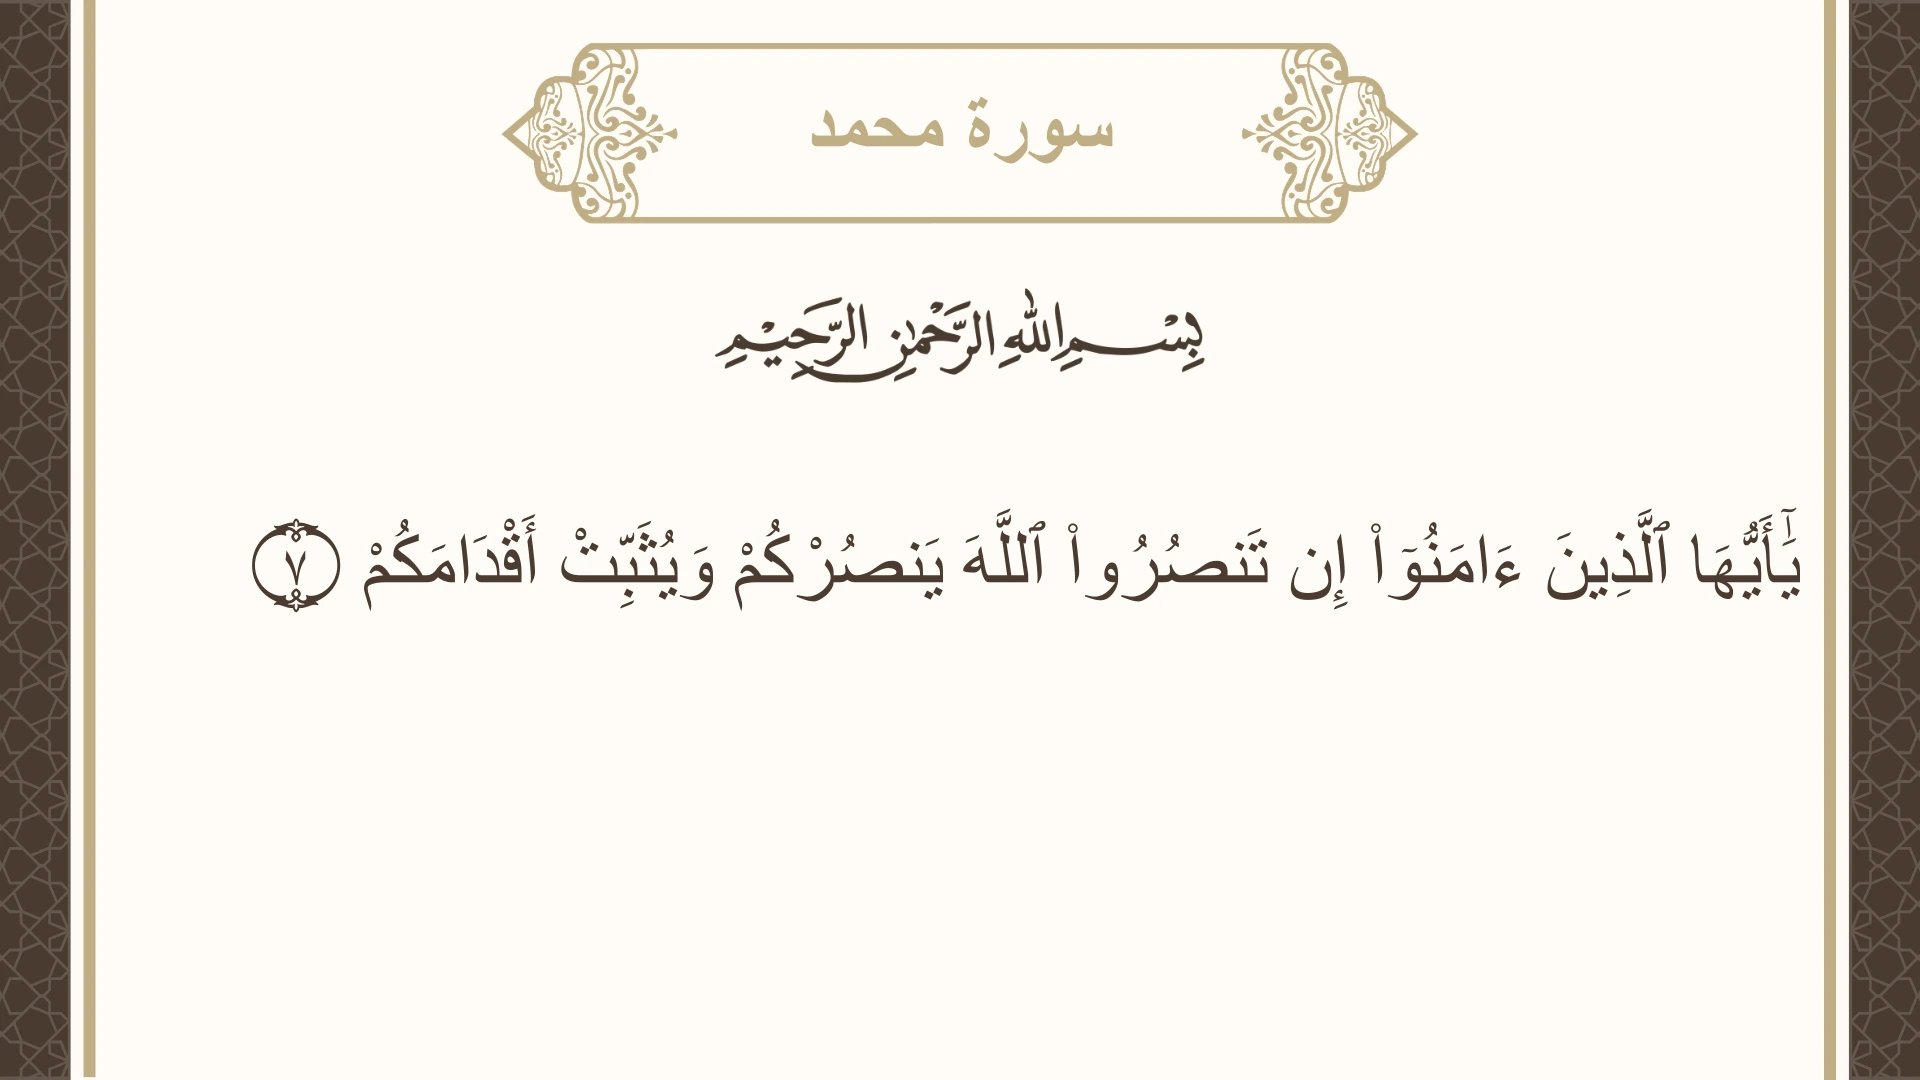 سورة محمد
بِسْمِ اللهِ الرَّحْمٰنِ الرَّحِيْمِ
يَٰٓأَيُّهَا ٱلَّذِينَ ءَامَنُوٓا۟ إِن تَنصُرُوا۟ ٱللَّهَ يَنصُرْكُمْ وَيُثَبِّتْ أَقْدَامَكُمْ ٧